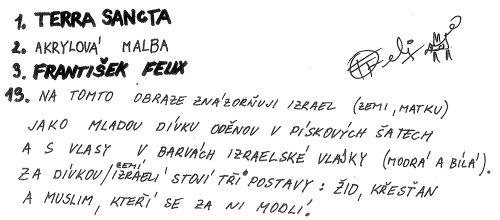 1. TERRA SANCTA
2. AKRYLOVÁ MALBA
3. FRANTIŠEK FELIX
13. NA TOMTO OBRAZE ZNÁZORŇUJI IZRAEL (ZEMI, MATKU)
JAKO MLADOU DÍVKU ODĚNOU V PÍSKOVÝCH ŠATECH
A S VLASY V BARVÁCH IZRAELSKÉ VLAJKY (MODRÁ A BÍLÁ).
ZA DÍVKOU/ZEMÍ IZRAELÍ STOJÍ TŘI POSTAVY: ŽID, KŘESŤAN
A MUSLIM, KTEŘÍ SE ZA NI MODLÍ.